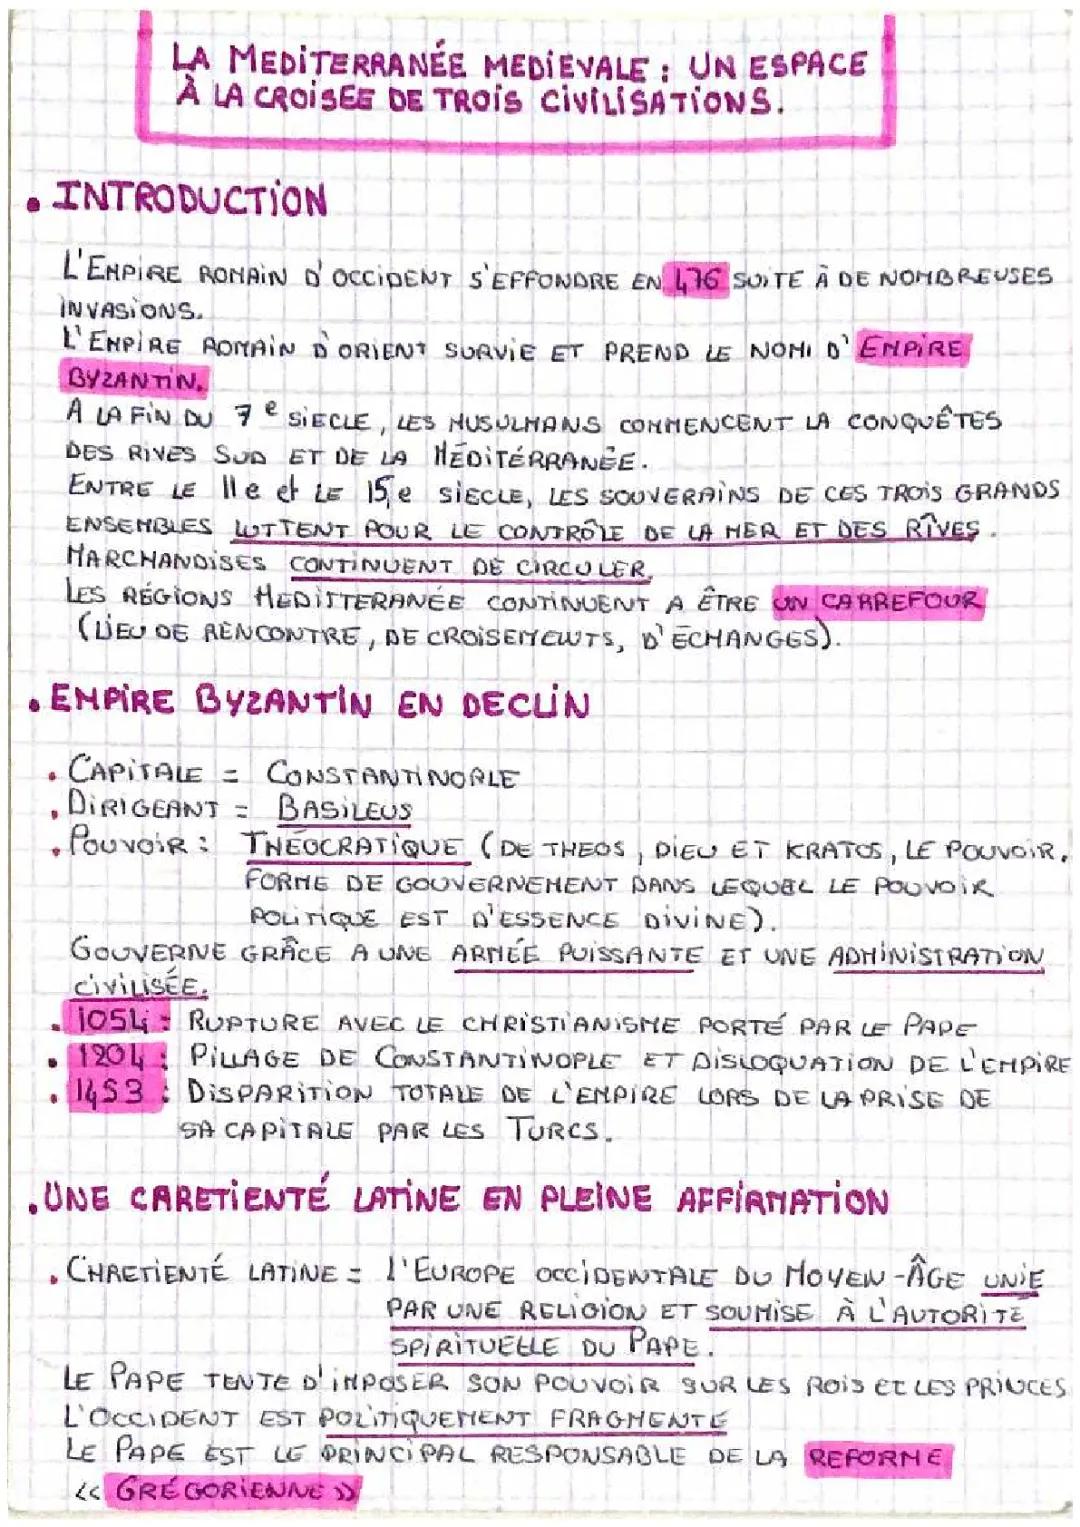 LA MEDITERRANÉE MEDIEVALE : UN ESPACE
À LA CROISEE DE TROIS CIVILISATIONS.
. INTRODUCTION
L'EMPIRE ROMAIN D'OCCIDENT S'EFFONDRE EN 476 SUITE À DE NOMBREUSES
INVASIONS.
L'EMPIRE ROMAIN D'ORIENT SURVIE ET PREND LE NOM D'EMPIRE
BYZANTIN.
A LA FIN DU 7e SIECLE, LES MUSULMANS COMMENCENT LA CONQUÊTES
DES RIVES SUD ET DE LA MÉDITÉRRANÉE.
ENTRE LE 11e et LE 15e SIECLE, LES SOUVERAINS DE CES TROIS GRANDS
ENSEMBLES LUTTENT POUR LE CONTRÔLE DE LA MER ET DES RIVES.
MARCHANDISES CONTINUENT DE CIRCULER.
LES RÉGIONS MEDITTERANÉE CONTINUENT A ÊTRE UN CARREFOUR
(LIEU DE RENCONTRE, DE CROISEMENTS, D'ECHANGES).
. EMPIRE BYZANTIN EN DECLIN
. CAPITALE = CONSTANTINOPLE
. DIRIGEANT = BASILEUS
. POUVOIR : THÉOCRATIQUE (DE THEOS, DIEU ET KRATOS, LE POUVOIR.
FORME DE GOUVERNEMENT DANS LEQUEL LE POUVOIR
POLITIQUE EST D'ESSENCE DIVINE).
GOUVERNE GRÂCE A UNE ARMÉE PUISSANTE ET UNE ADMINISTRATION
CIVILISÉE.
. 1054 : RUPTURE AVEC LE CHRISTIANISME PORTÉ PAR LE PAPE
. 1204 : PILLAGE DE CONSTANTINOPLE ET DISLOQUATION DE L'EMPIRE
. 1453 : DISPARITION TOTALE DE L'EMPIRE LORS DE LA PRISE DE
SA CAPITALE PAR LES TURCS.
. UNE CARETIENTÉ LATINE EN PLEINE AFFIRMATION
. CHRETIENTÉ LATINE = l'EUROPE OCCIDENTALE DU MOYEN-ÂGE UNIE
PAR UNE RELIGION ET SOUMISE À L'AUTORITÉ
SPIRITUELLE DU PAPE.
LE PAPE TENTE D'IMPOSER SON POUVOIR SUR LES ROIS ET LES PRINCES
L'OCCIDENT EST POLITIQUEMENT FRAGMENTÉ
LE PAPE EST LE PRINCIPAL RESPONSABLE DE LA REFORME
<< GRÉGORIENNE >>